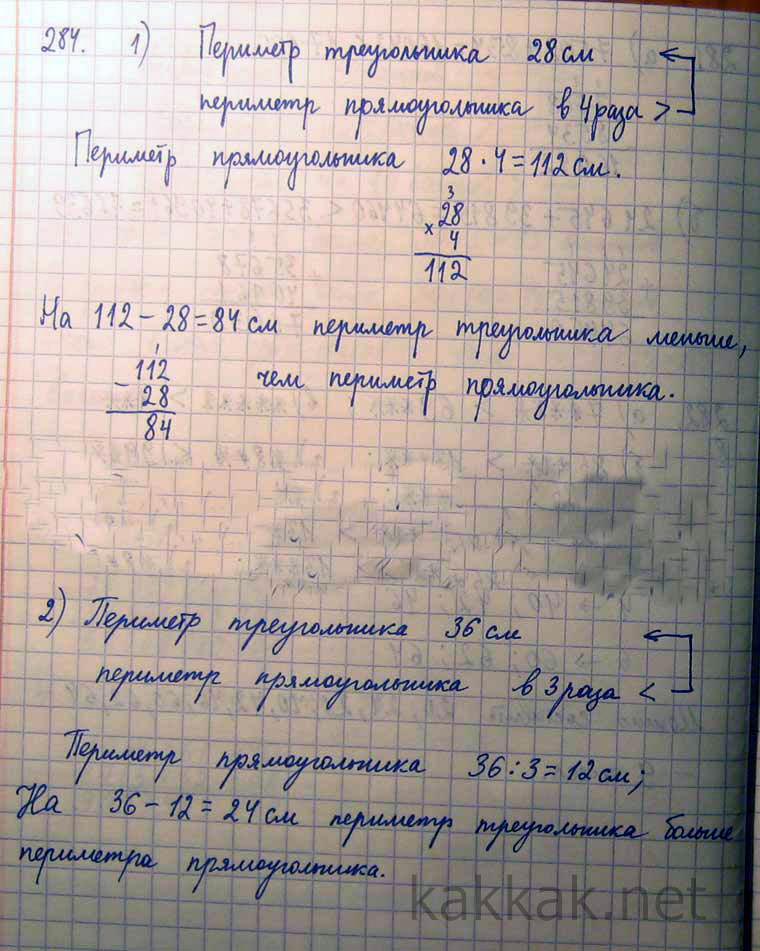 284. 1) Периметр треугольника 28 см
периметр прямоугольника в 4 раза >
Периметр прямоугольника 28 · 4 = 112 см.
3
28
× 4
112
На 112 – 28 = 84 см периметр треугольника меньше,
чем периметр прямоугольника.
1
112
– 28
84
2) Периметр треугольника 36 см
периметр прямоугольника в 3 раза <
Периметр прямоугольника 36 : 3 = 12 см;
На 36 – 12 = 24 см периметр треугольника больше
периметра прямоугольника.
kakkak.net